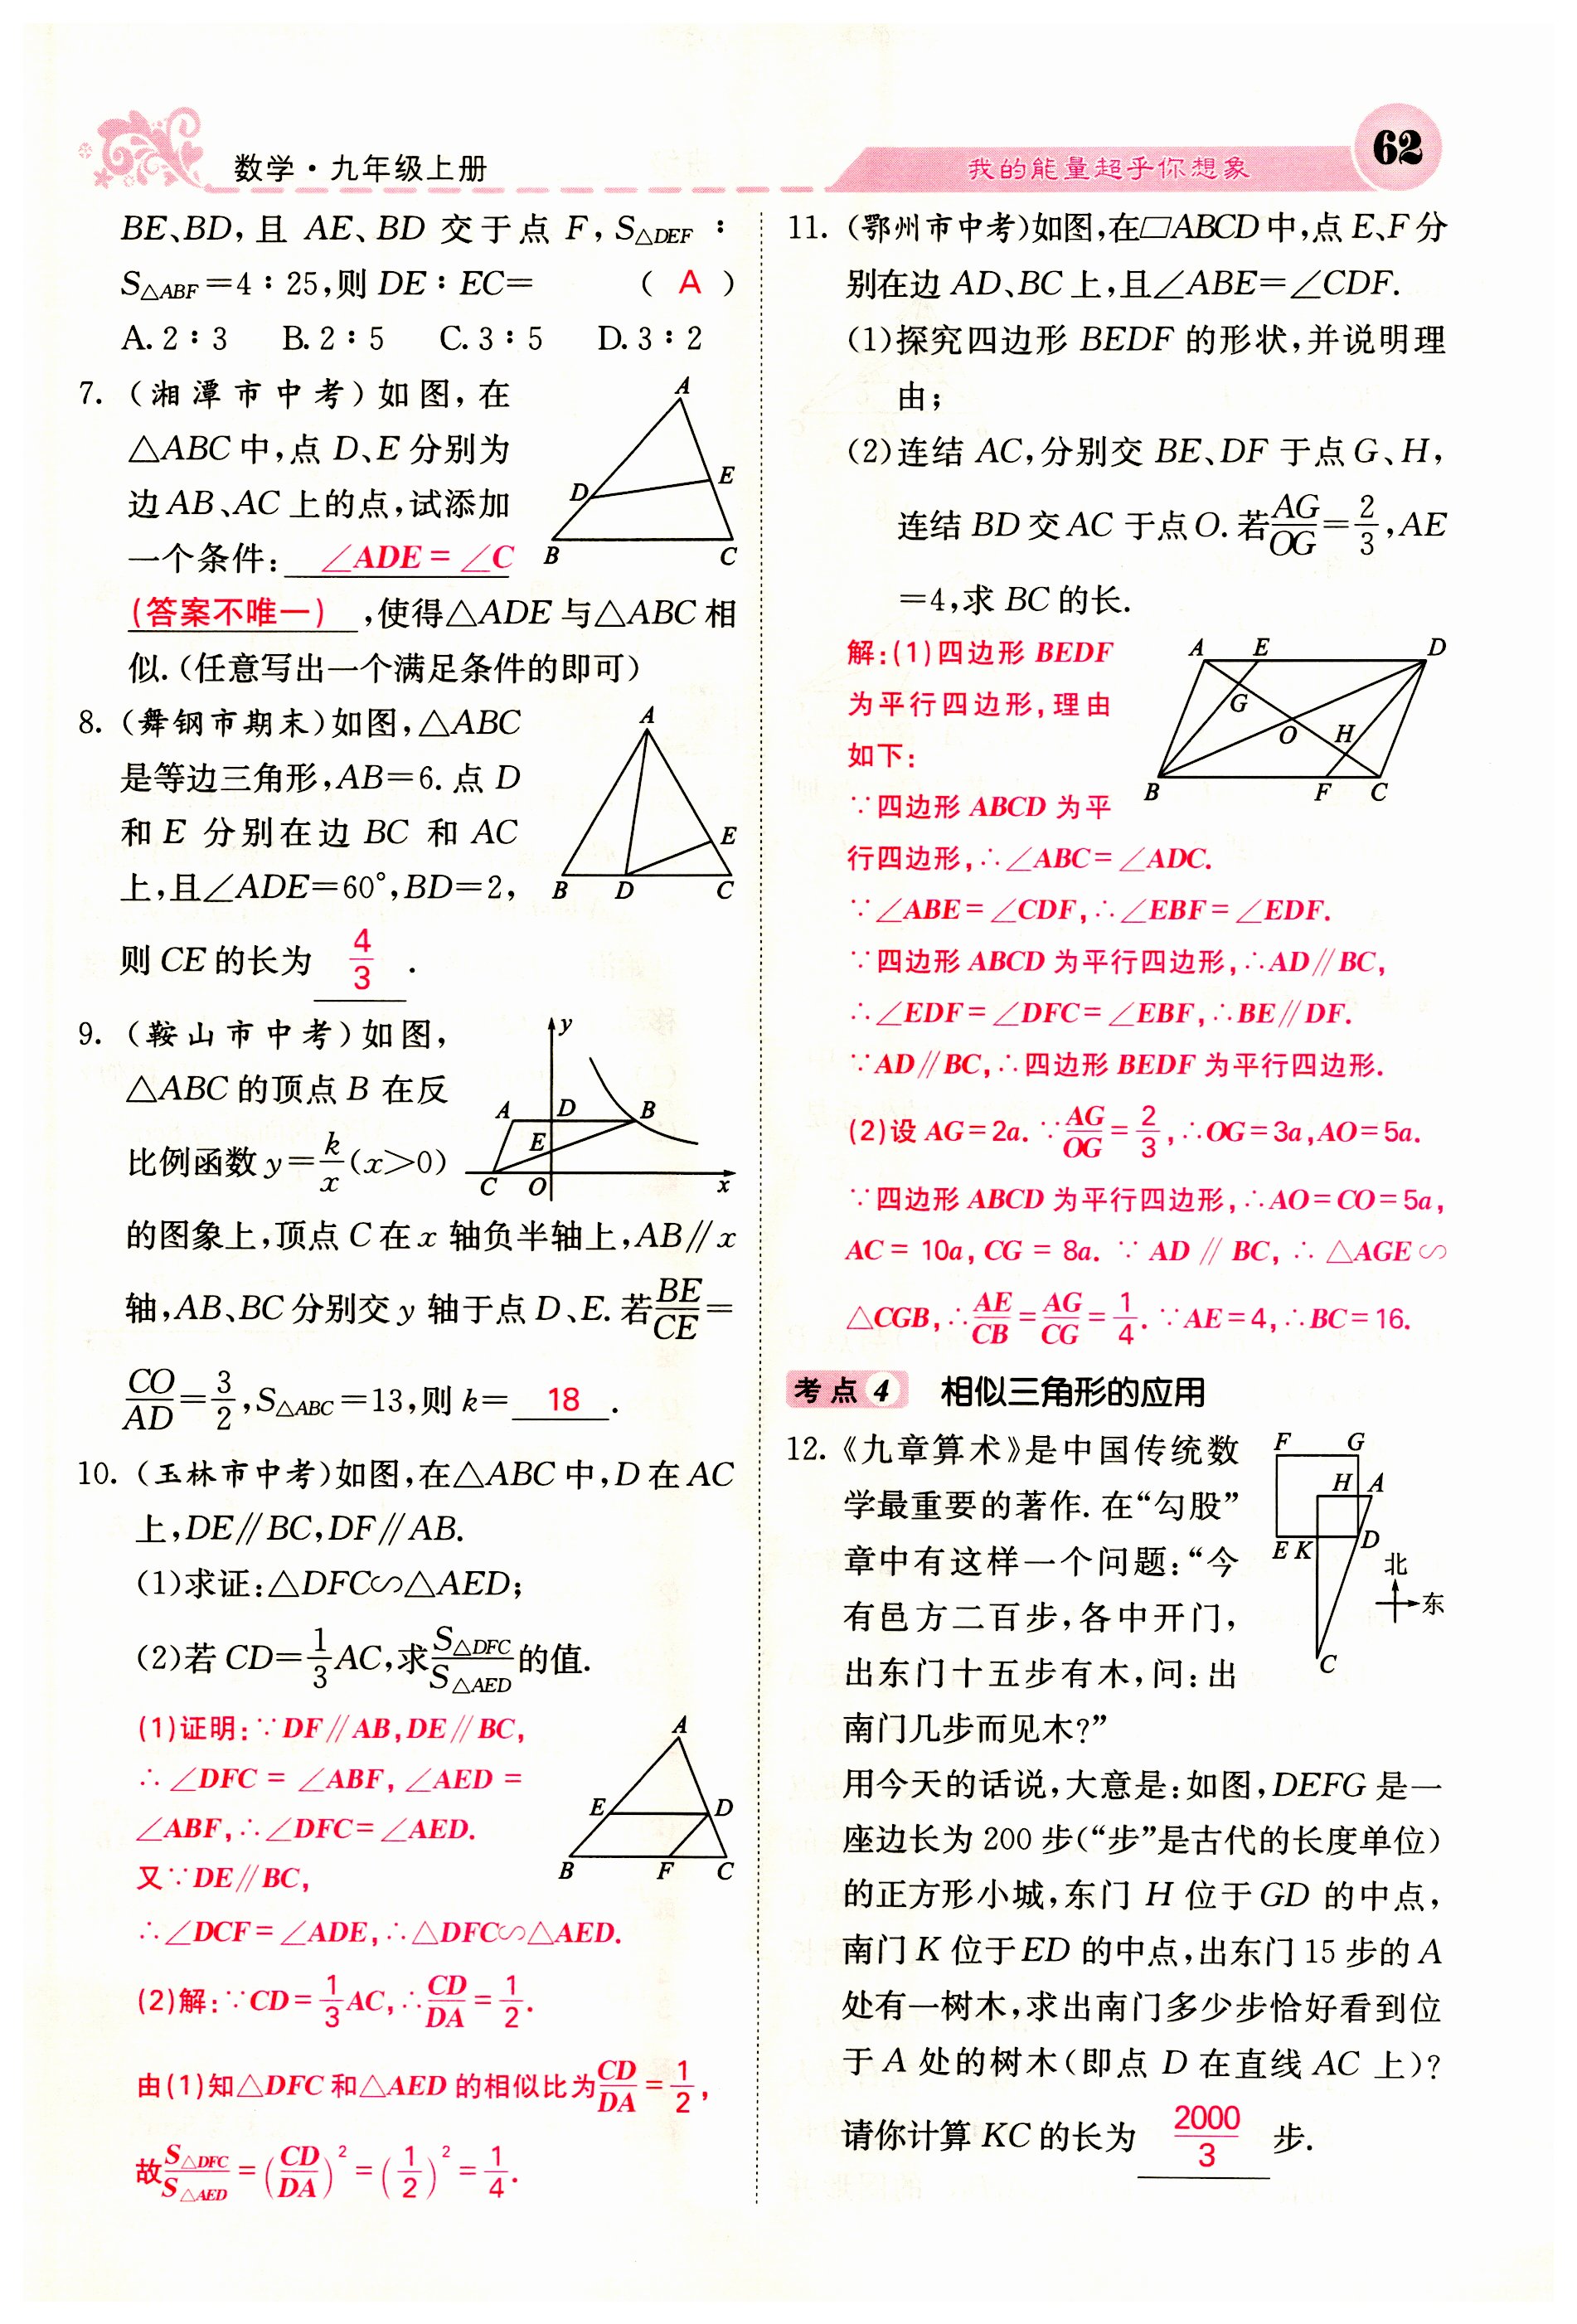 数学·九年级上册
我的能量超乎你想象
62
BE、BD,且 AE、BD 交于点 F,S△DEF :
S△ABF=4:25,则 DE:EC= ( A )
A. 2:3 B. 2:5 C. 3:5 D. 3:2
7. (湘潭市中考)如图,在
△ABC 中,点 D、E 分别为
边 AB、AC 上的点,试添加
一个条件: ∠ADE = ∠C
(答案不唯一) ,使得△ADE 与△ABC 相
似.(任意写出一个满足条件的即可)
A
D
E
B
C
8. (舞钢市期末)如图,△ABC
是等边三角形,AB=6. 点 D
和 E 分别在边 BC 和 AC
上,且∠ADE=60°,BD=2,
则 CE 的长为 4/3 .
A
E
B
D
C
9. (鞍山市中考)如图,
△ABC 的顶点 B 在反
比例函数 y=k/x(x>0)
的图象上,顶点 C 在 x 轴负半轴上,AB∥x
轴,AB、BC 分别交 y 轴于点 D、E. 若BE/CE=
CO/AD=3/2,S△ABC=13,则 k= 18 .
y
A
D
B
E
C
O
x
10. (玉林市中考)如图,在△ABC 中,D 在 AC
上,DE∥BC,DF∥AB.
(1)求证:△DFC∽△AED;
(2)若 CD=1/3AC,求S△DFC/S△AED的值.
(1)证明:∵DF∥AB,DE∥BC,
∴∠DFC = ∠ABF,∠AED =
∠ABF,∴∠DFC=∠AED.
又∵DE∥BC,
∴∠DCF=∠ADE,∴△DFC∽△AED.
(2)解:∵CD=1/3AC,∴CD/DA=1/2.
由(1)知△DFC 和△AED 的相似比为CD/DA=1/2,
故S△DFC/S△AED=(CD/DA)²=(1/2)²=1/4.
A
E
D
B
F
C
11. (鄂州市中考)如图,在▱ABCD 中,点 E、F 分
别在边 AD、BC 上,且∠ABE=∠CDF.
(1)探究四边形 BEDF 的形状,并说明理
由;
(2)连结 AC,分别交 BE、DF 于点 G、H,
连结 BD 交 AC 于点 O. 若AG/OG=2/3,AE
=4,求 BC 的长.
解:(1)四边形 BEDF
为平行四边形,理由
如下:
∵四边形 ABCD 为平
行四边形,∴∠ABC=∠ADC.
∵∠ABE=∠CDF,∴∠EBF=∠EDF.
∵四边形 ABCD 为平行四边形,∴AD∥BC,
∴∠EDF=∠DFC=∠EBF,∴BE∥DF.
∵AD∥BC,∴四边形 BEDF 为平行四边形.
(2)设 AG=2a. ∵AG/OG=2/3,∴OG=3a,AO=5a.
∵四边形 ABCD 为平行四边形,∴AO=CO=5a,
AC = 10a, CG = 8a. ∵ AD ∥ BC, ∴ △AGE∽
△CGB,∴AE/CB=AG/CG=1/4. ∵AE=4,∴BC=16.
A
E
D
G
O
H
B
F
C
考点 4 相似三角形的应用
12. 《九章算术》是中国传统数
学最重要的著作. 在“勾股”
章中有这样一个问题:“今
有邑方二百步,各中开门,
出东门十五步有木,问:出
南门几步而见木?”
用今天的话说,大意是:如图,DEFG 是一
座边长为 200 步(“步”是古代的长度单位)
的正方形小城,东门 H 位于 GD 的中点,
南门 K 位于 ED 的中点,出东门 15 步的 A
处有一树木,求出南门多少步恰好看到位
于 A 处的树木(即点 D 在直线 AC 上)?
请你计算 KC 的长为 2000/3 步.
F
G
H
A
E
K
D
北
东
C